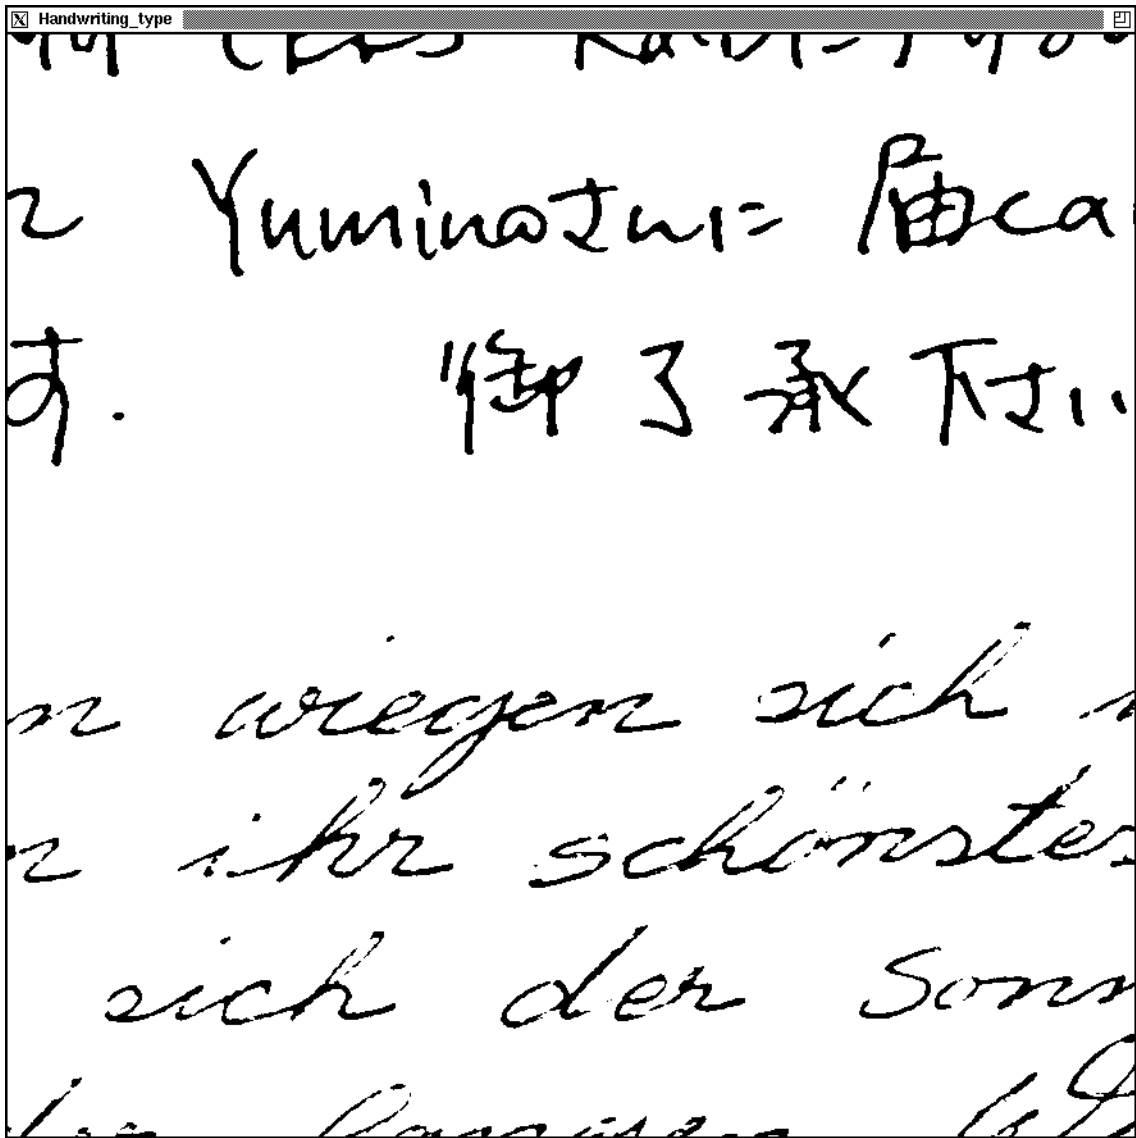 Handwriting_type
Yuminaさんに 届け
す. 御了承下さい
n wiegen sich
n ihr schönstes
sich der Sonn